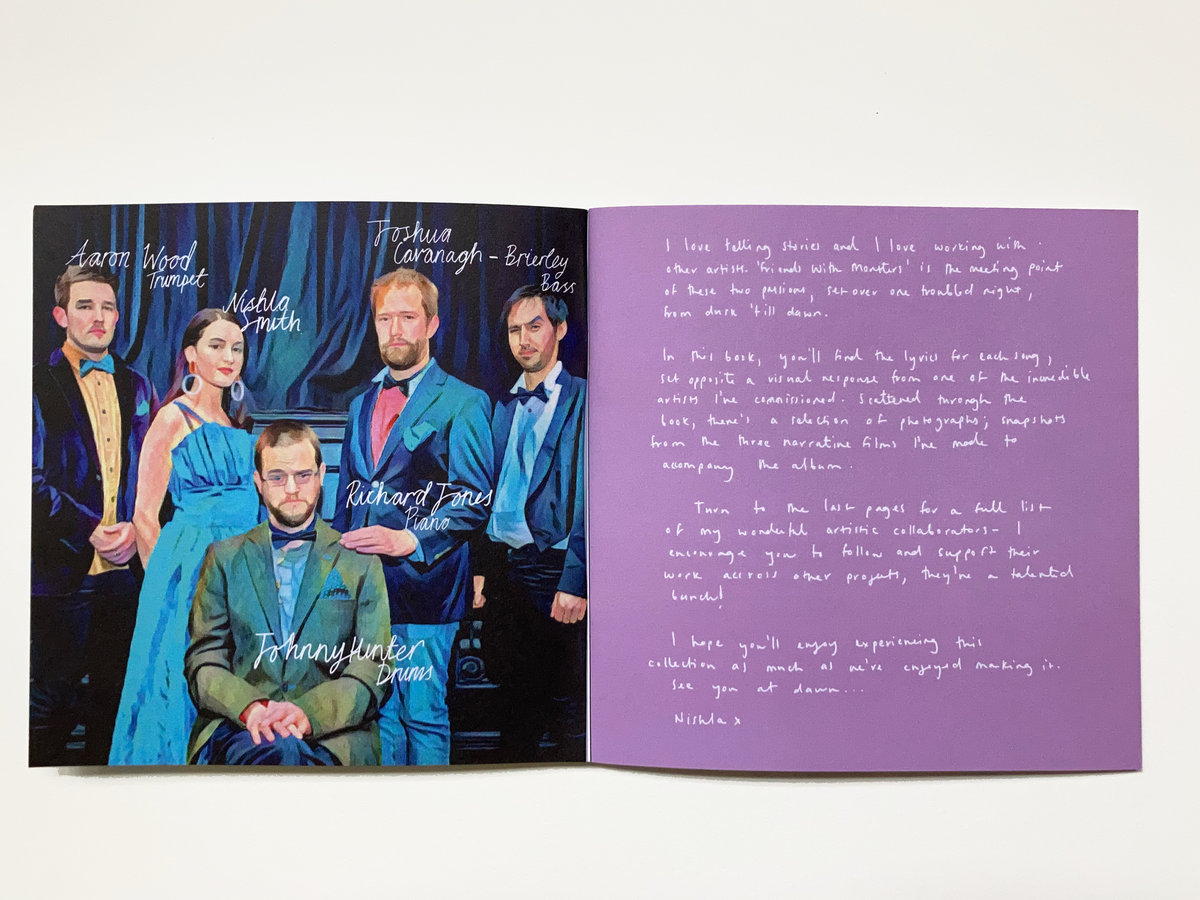 Aaron Wood
Trumpet
Nishla
Smith
Joshua
Cavanagh - Brierley
Bass
Richard Jones
Piano
Johnny Hunter
Drums
I love telling stories and I love working with
other artists. 'Friends With Monsters' is the meeting point
of these two passions, set over one troubled night,
from dusk 'till dawn.
In this book, you'll find the lyrics for each song,
set opposite a visual response from one of the incredible
artists I've commissioned. Scattered through the
book, there's a selection of photographs; snapshots
from the three narrative films I've made to
accompany the album.
Turn to the last pages for a full list
of my wonderful artistic collaborators - I
encourage you to follow and support their
work across other projects, they're a talented
bunch!
I hope you'll enjoy experiencing this
collection as much as we've enjoyed making it.
See you at dawn...
Nishla x